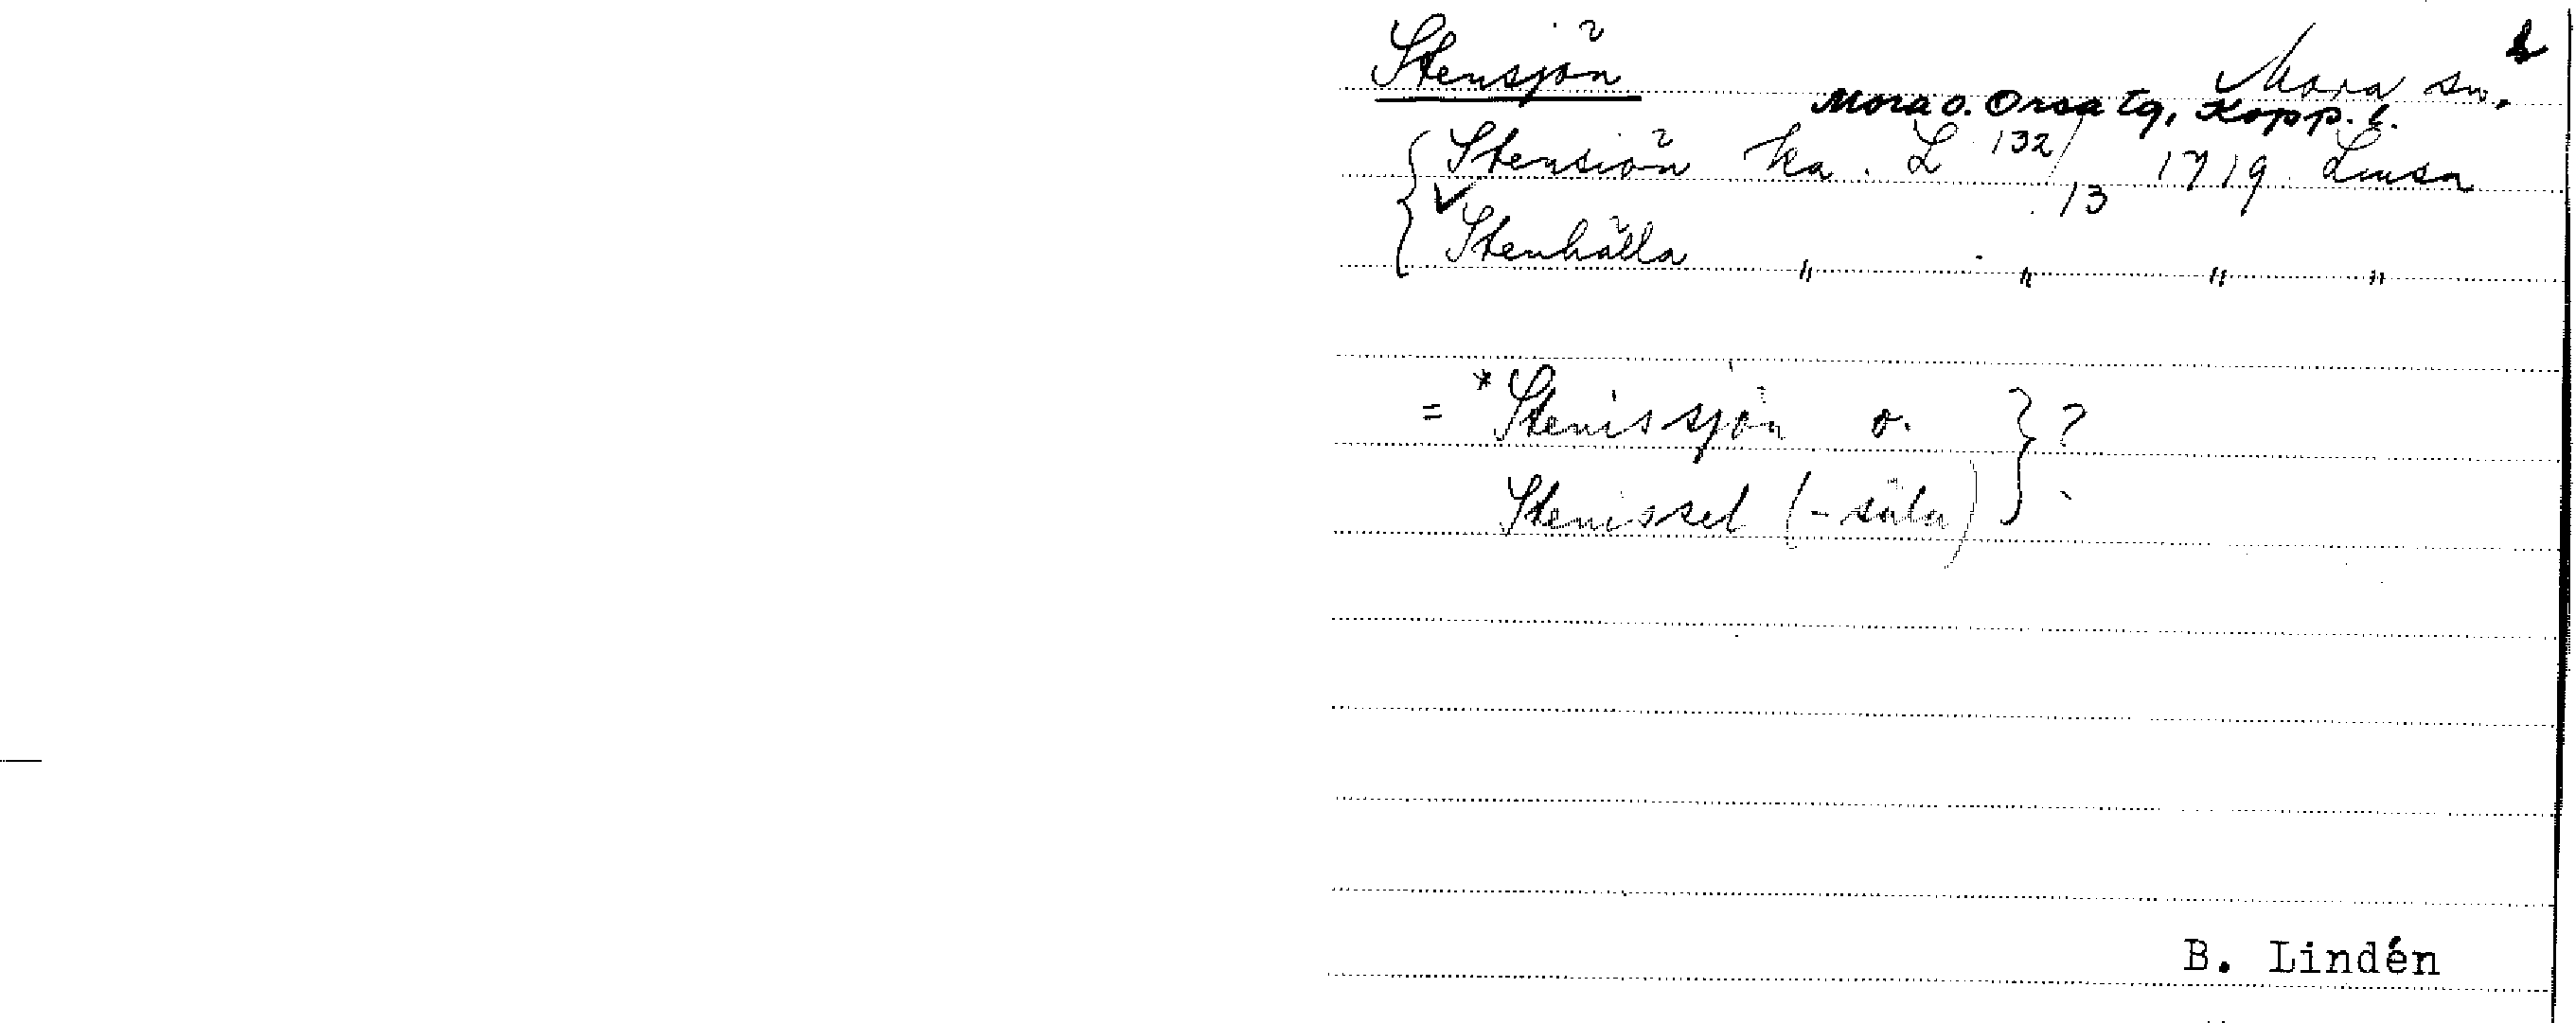 Stensjön Mora sn.
Mora o. Orsa tg, Kopp. l.
Stensiön ka. L 132/13 1719 Lmsa
Stenhälla " " " "
= *Stenissjön o. ?
Stenissel (-säla)
B. Lindén